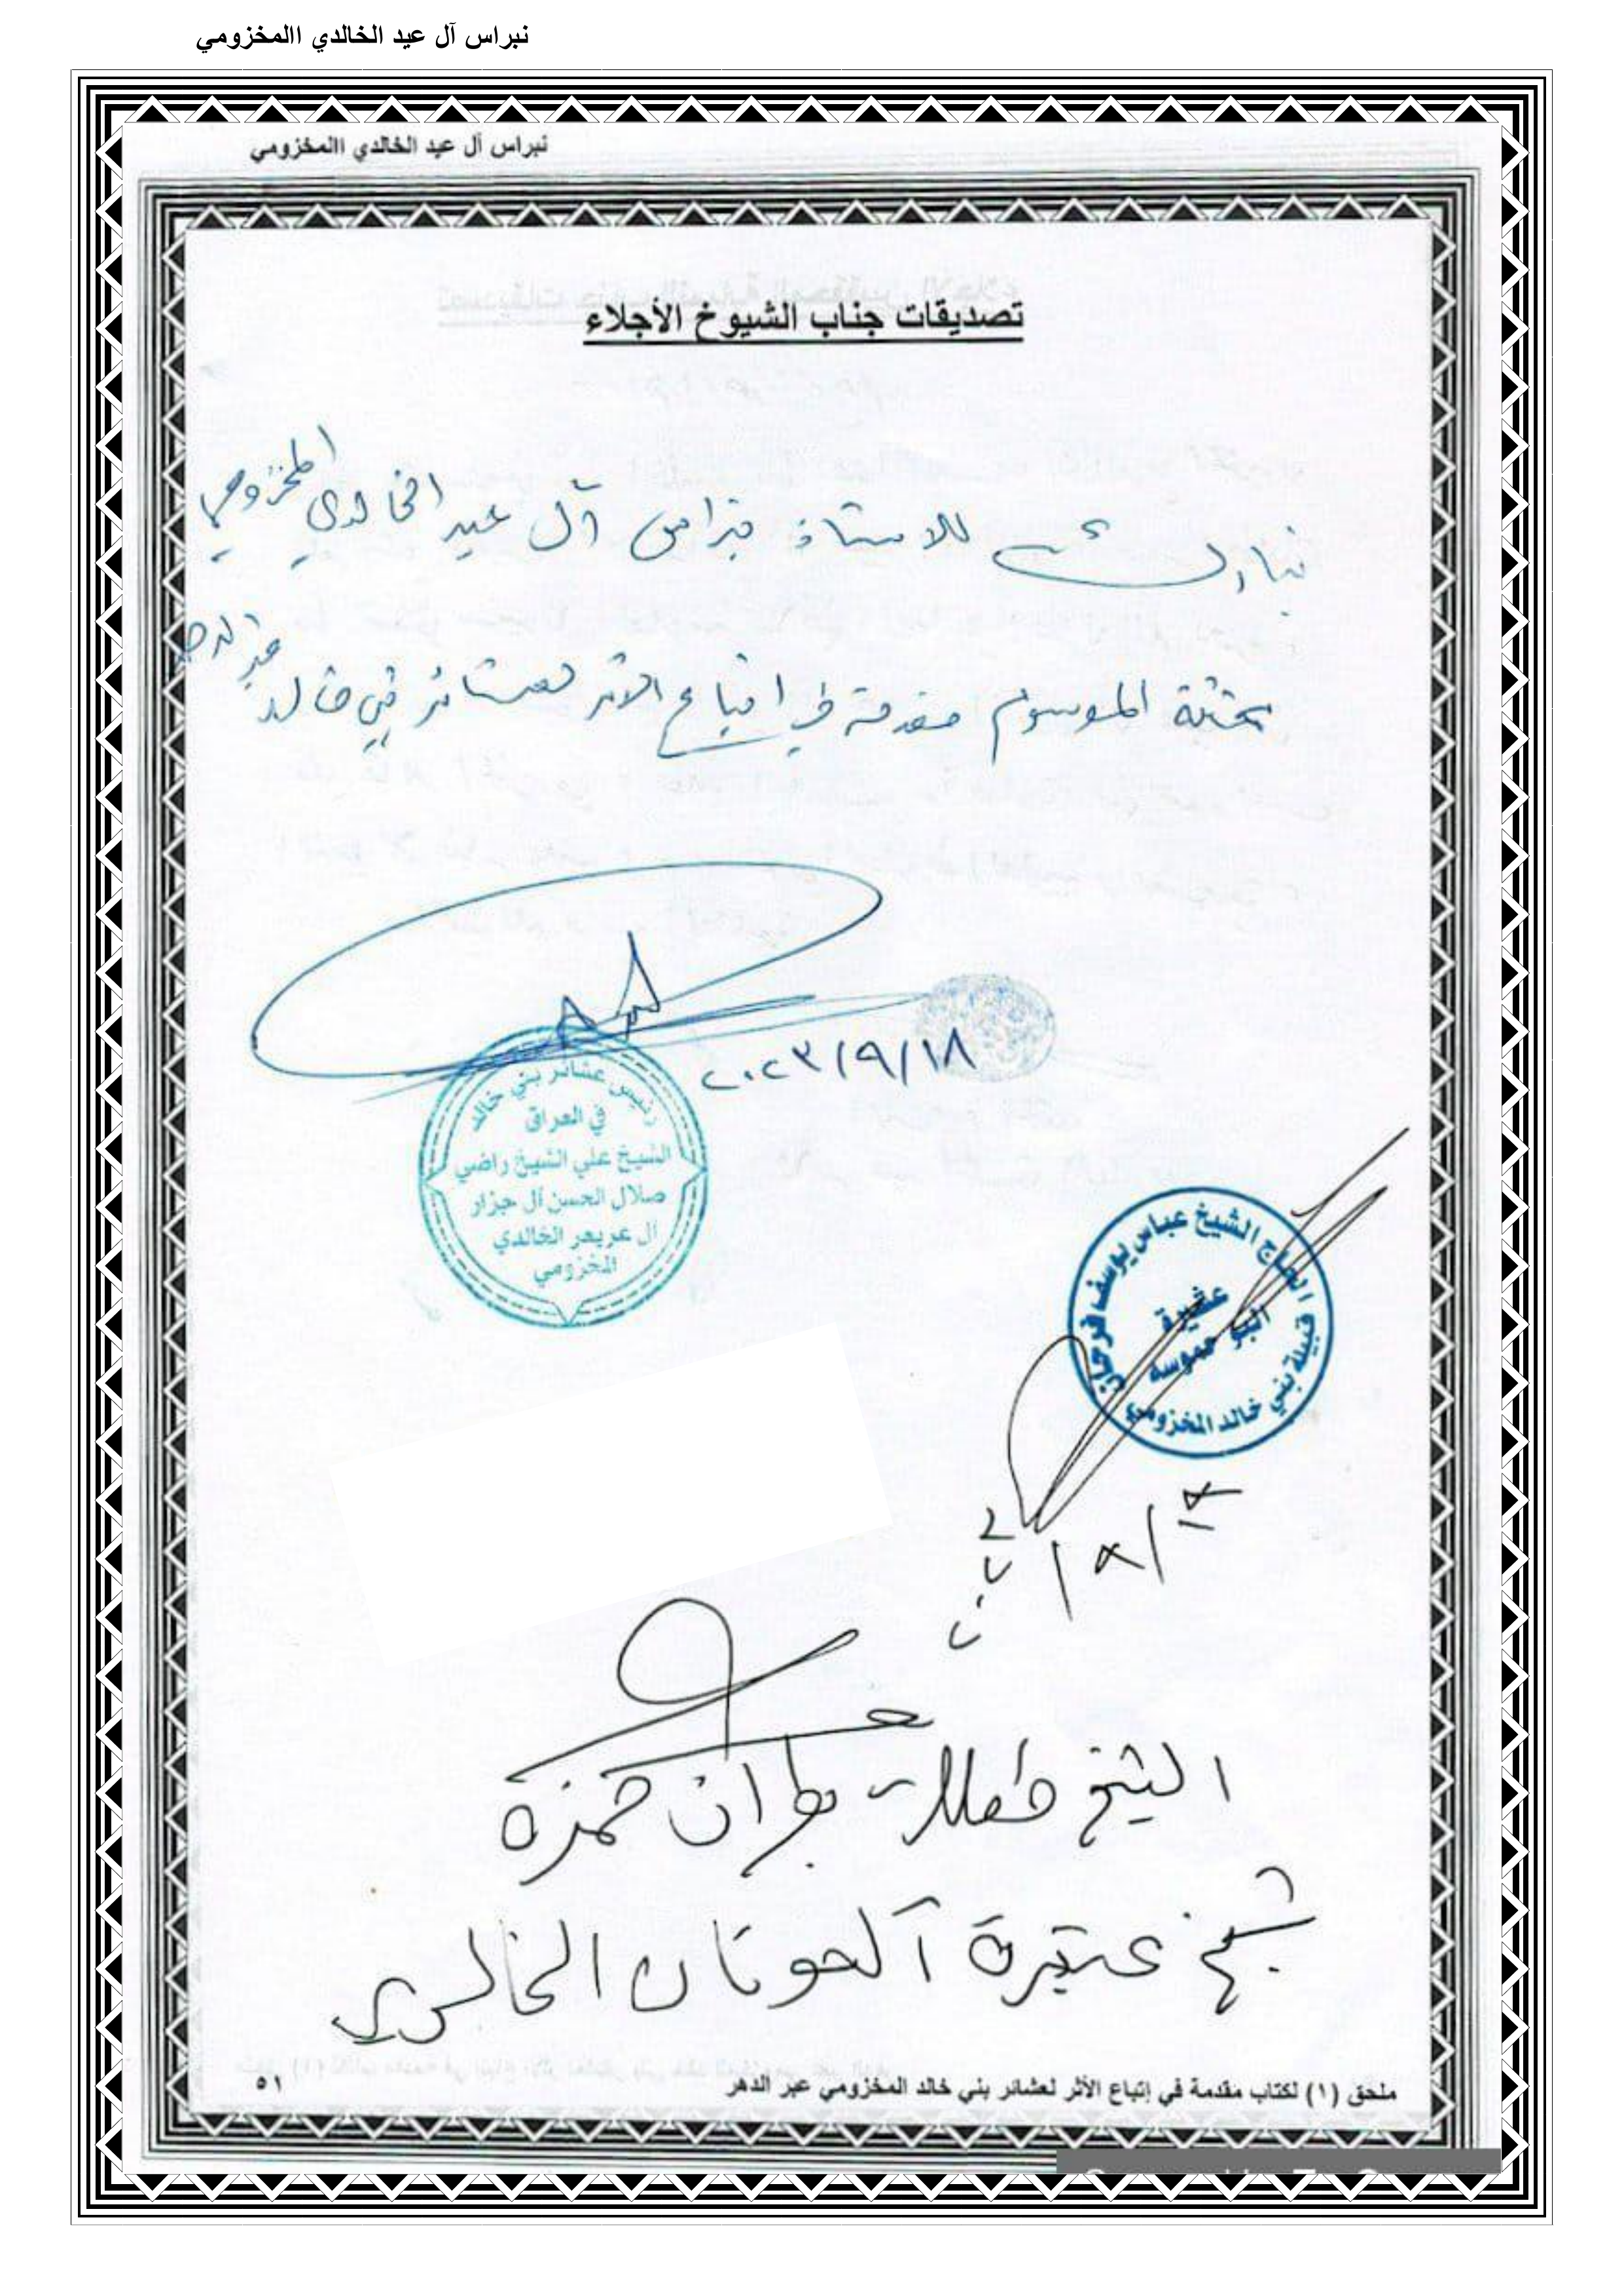 نبراس آل عيد الخالدي االمخزومي
نبراس آل عيد الخالدي االمخزومي
تصديقات جناب الشيوخ الأجلاء
نبارك للاستاذ نبراس آل عيد الخالدي المخزومي
بحثه الموسوم مقدمة في اتباع الاثر لعشائر بني خالد عبر الدهر
٢٠٢٣/٩/١٨
رئيس عشائر بني خالد
في العراق
الشيخ علي الشيخ راضي
صلال الحسن آل جزار
آل عريعر الخالدي
المخزومي
الحاج الشيخ عباس يوسف فرحان
عشيرة
البو حموسه
قبيلة بني خالد المخزومي
الشيخ حمزه
شيخ عشيرة آل حونان الخالدي
ملحق (١) لكتاب مقدمة في إتباع الأثر لعشائر بني خالد المخزومي عبر الدهر
٥١